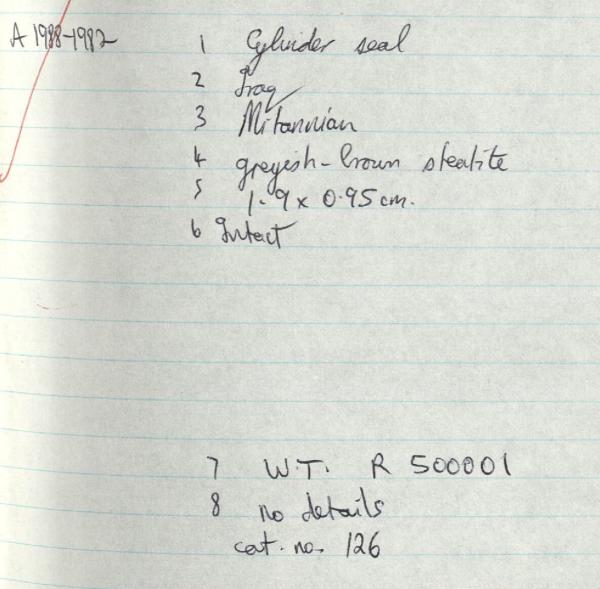 A 1988-1982
1 Cylinder seal
2 Iraq
3 Mitannian
4 greyish-brown steatite
5 1.9 x 0.95 cm.
6 Intact
7 W.T. R 500001
8 no details
cat. no. 126